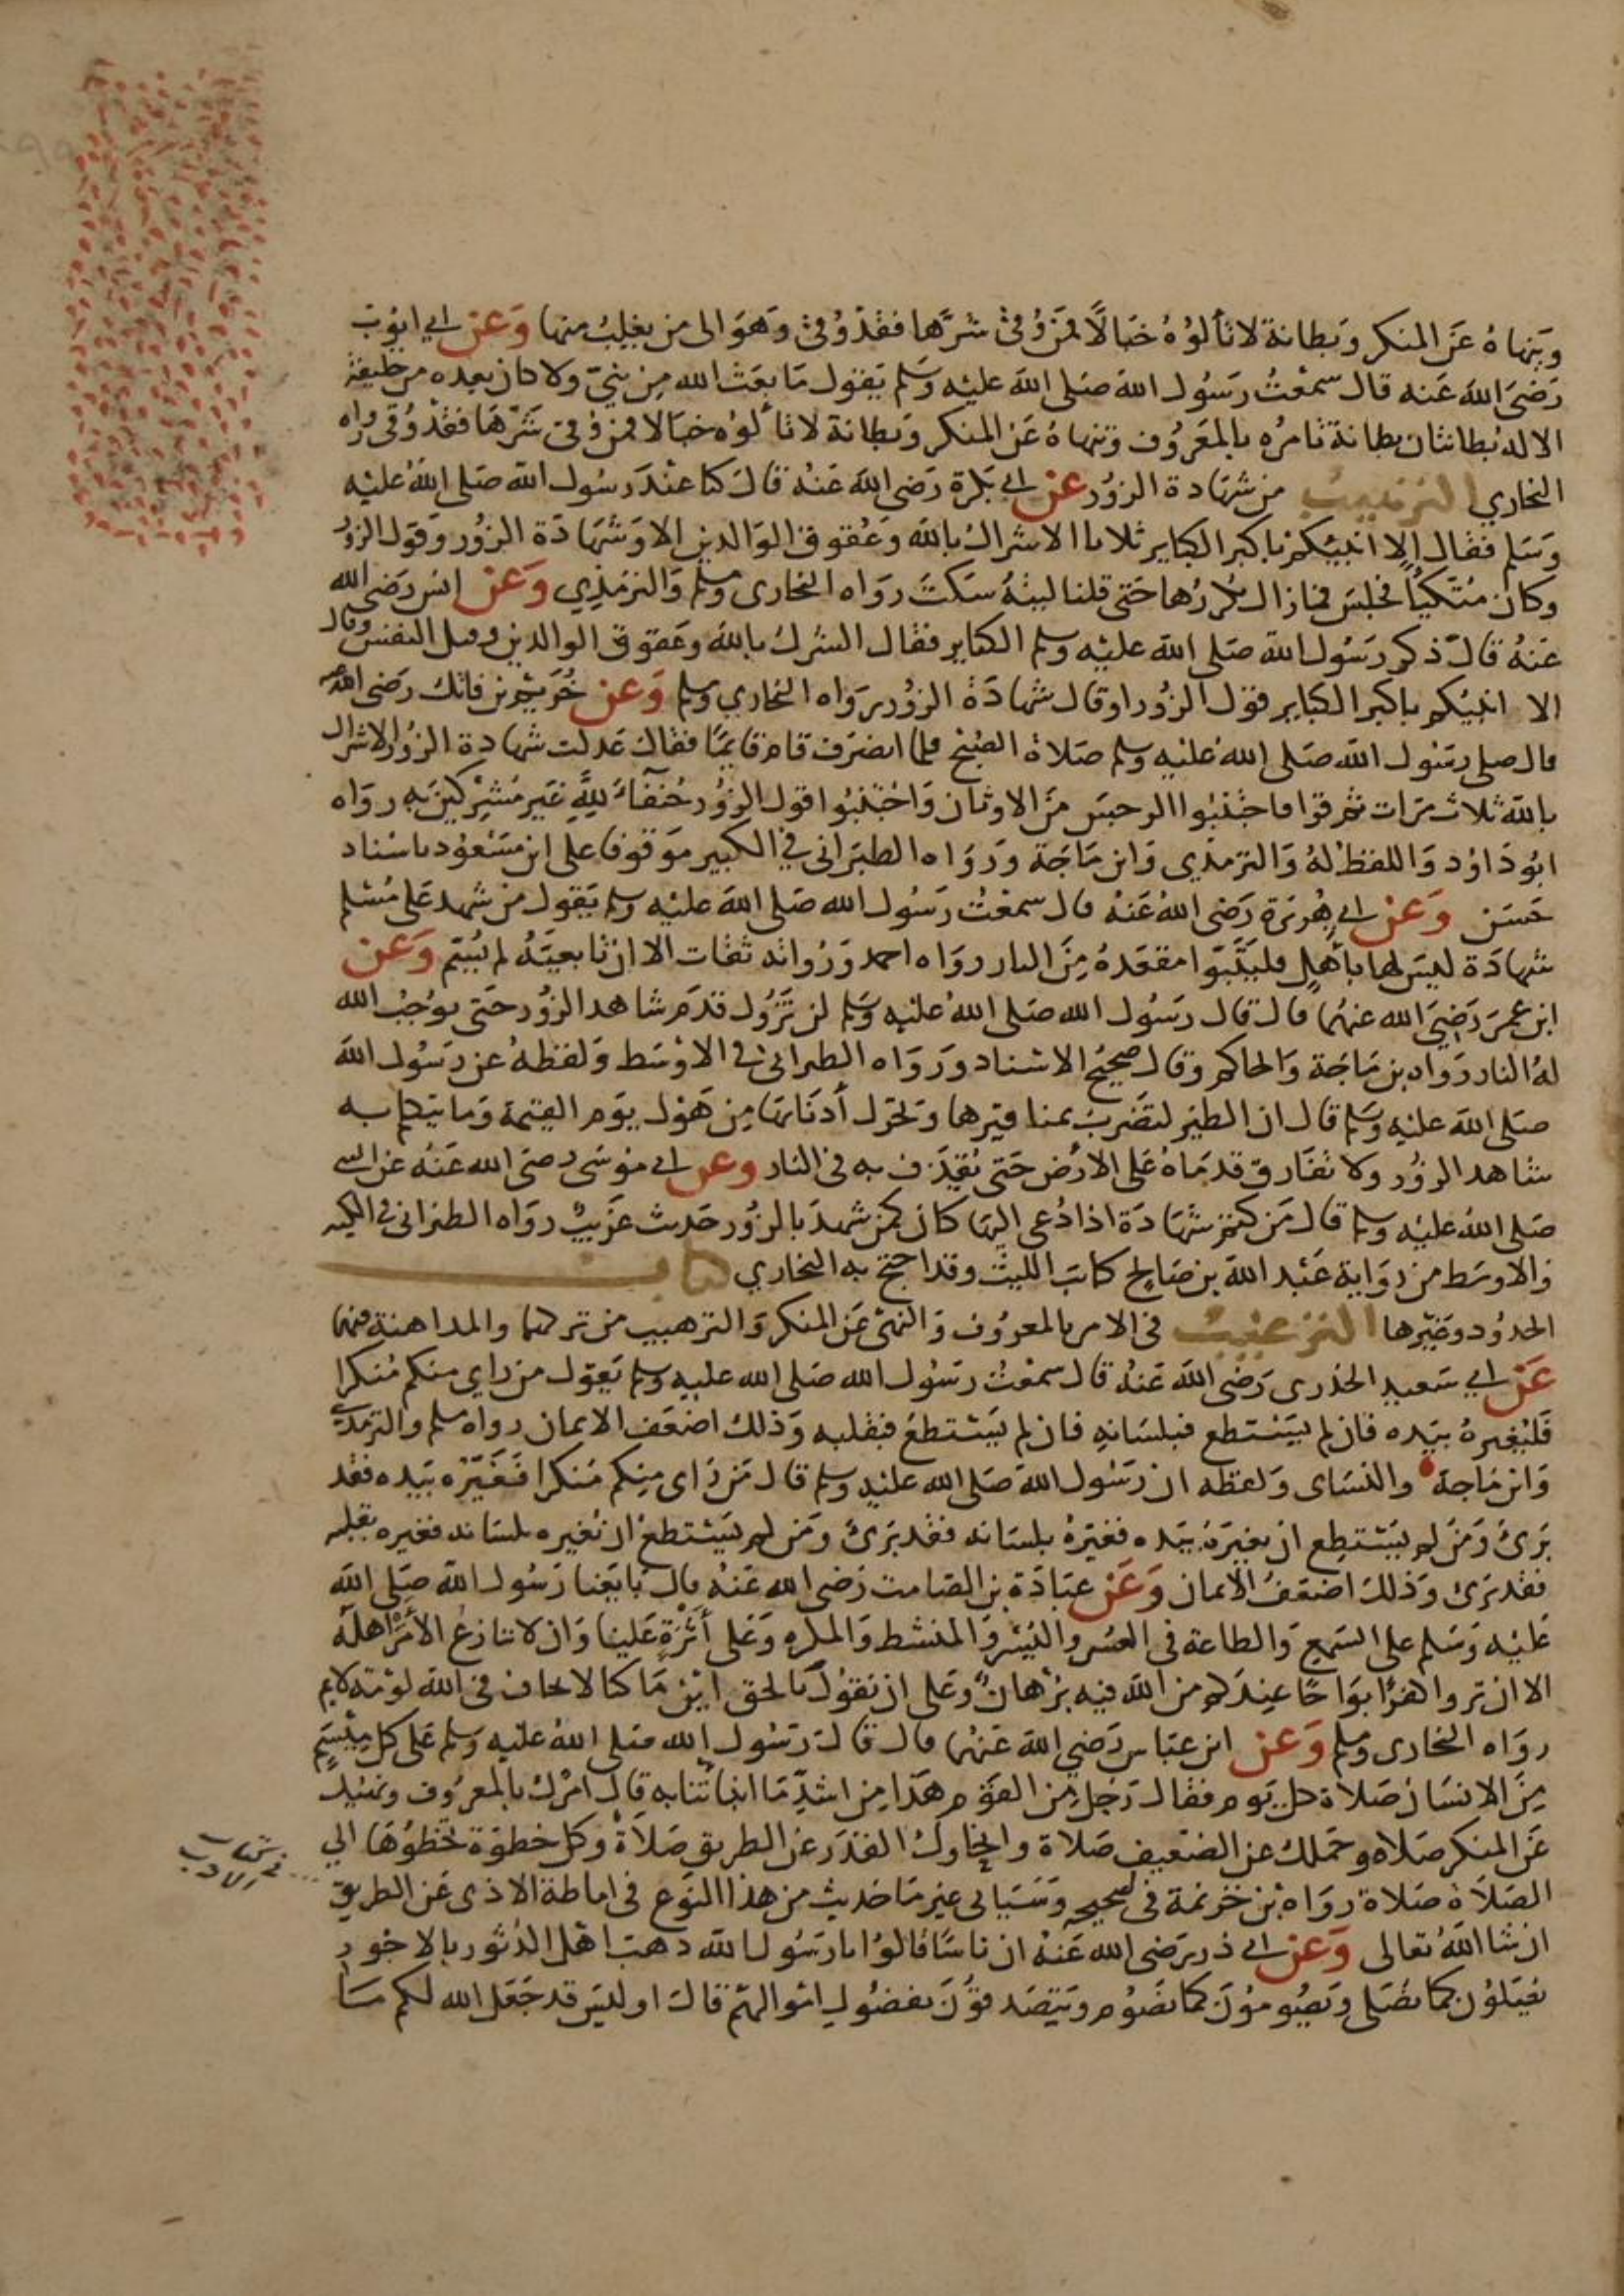 وينهاه عن المنكر وبطانة لا تألوه خبالا فمن وقي شرها فقد وقي وهو الى من يغلب منها وعن ابي ايوب
رضي الله عنه قال سمعت رسول الله صلى الله عليه وسلم يقول ما بعث الله من نبي ولا كان بعده من خليفة
الا له بطانتان بطانة تامره بالمعروف وتنهاه عن المنكر وبطانة لا تألوه خبالا فمن وقي شرها فقد وقي رواه
البخاري الترهيب من شهادة الزور عن ابي بكرة رضي الله عنه قال كنا عند رسول الله صلى الله عليه
وسلم فقال الا انبيكم باكبر الكباير ثلاثا الاشراك بالله وعقوق الوالدين الا وشهادة الزور وقول الزور
وكان متكيا فجلس فمازال يكررها حتى قلنا ليته سكت رواه البخاري ومسلم والترمذي وعن انس رضي الله
عنه قال ذكر رسول الله صلى الله عليه وسلم الكباير فقال الشرك بالله وعقوق الوالدين وقتل النفس وقال
الا انبيكم باكبر الكباير قول الزور او قال شهادة الزور رواه البخاري ومسلم وعن خريم بن فاتك رضي الله عنه
قال صلى رسول الله صلى الله عليه وسلم صلاة الصبح فلما انصرف قام قايما فقال عدلت شهادة الزور الاشراك
بالله ثلاث مرات ثم قرا فاجتنبوا الرجس من الاوثان واجتنبوا قول الزور حنفاء لله غير مشركين به رواه
ابو داود واللفظ له والترمذي وابن ماجة ورواه الطبراني في الكبير موقوفا على ابن مسعود باسناد
حسن وعن ابي هريرة رضي الله عنه قال سمعت رسول الله صلى الله عليه وسلم يقول من شهد على مسلم
شهادة ليس لها باهل فليتبوا مقعده من النار رواه احمد ورواته ثقات الا ان تابعيه لم يسم وعن
ابن عمر رضي الله عنهما قال قال رسول الله صلى الله عليه وسلم لن تزول قدم شاهد الزور حتى يوجب الله
له النار رواه بن ماجة والحاكم وقال صحيح الاسناد ورواه الطبراني في الاوسط ولفظه عن رسول الله
صلى الله عليه وسلم قال ان الطير لتضرب بمناقيرها وتحرك أذنابها من هول يوم القيمة وما يتكلم به
شاهد الزور ولا تفارق قدماه على الارض حتى يقذف به في النار وعن ابي موسى رضي الله عنه عن النبي
صلى الله عليه وسلم قال من كتم شهادة اذا دعي اليها كان كمن شهد بالزور حديث غريب رواه الطبراني في الكبير
والاوسط من رواية عبد الله بن صالح كاتب الليث وقد احتج به البخاري كتاب
الحدود وغيرها الترغيب في الامر بالمعروف والنهي عن المنكر والترهيب من تركهما والمداهنة فيهما
عن ابي سعيد الخدري رضي الله عنه قال سمعت رسول الله صلى الله عليه وسلم يقول من راي منكم منكرا
فليغيره بيده فان لم يستطع فبلسانه فان لم يستطع فبقلبه وذلك اضعف الايمان رواه مسلم والترمذي
وابن ماجة والنساي ولفظه ان رسول الله صلى الله عليه وسلم قال من راى منكم منكرا فغيره بيده فقد
برئ ومن لم يستطع ان يغيره بيده فغيره بلسانه فقد برئ ومن لم يستطع ان يغيره بلسانه فغيره بقلبه
فقد برئ وذلك اضعف الايمان وعن عبادة بن الصامت رضي الله عنه قال بايعنا رسول الله صلى الله
عليه وسلم على السمع والطاعة في العسر واليسر والمنشط والمكره وعلى أثرة علينا وان لا ننازع الأمر اهله
الا ان تروا كفرا بواحا عندكم من الله فيه برهان وعلى ان نقول بالحق اين ما كنا لا نخاف في الله لومة لايم
رواه البخاري ومسلم وعن ابن عباس رضي الله عنهما قال قال رسول الله صلى الله عليه وسلم على كل ميسم
من الانسان صلاة كل يوم فقال رجل من القوم هذا من اشد ما انبأتنا به قال امرك بالمعروف ونهيك
عن المنكر صلاه وحملك عن الضعيف صلاة وانحاوك القذر عن الطريق صلاة وكل خطوة تخطوها الي
الصلاة صلاة رواه بن خزيمة في صحيحه وسياتي غير ما حديث من هذا النوع في اماطة الاذى عن الطريق
ان شا الله تعالى وعن ابي ذر رضي الله عنه ان ناسا قالوا يا رسول الله ذهب اهل الدثور بالاجور
يصلون كما نصلي ويصومون كما نصوم ويتصدقون بفضول اموالهم قال اوليس قد جعل الله لكم ما
في كتاب الادب